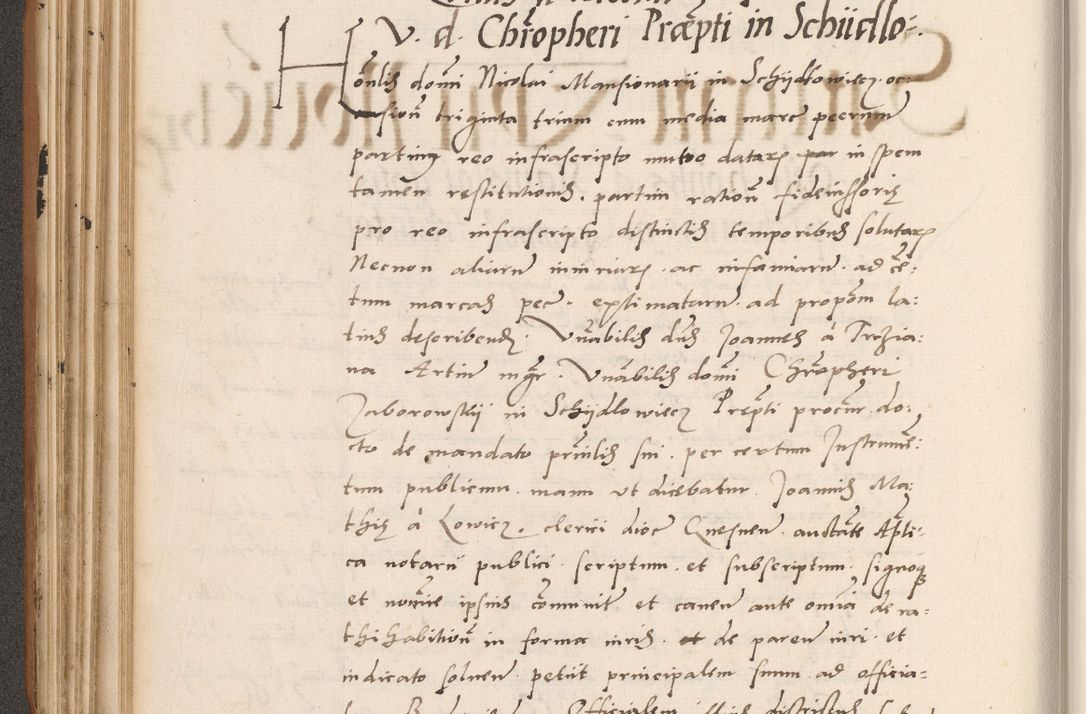 V. d. Chrõpheri Præpti in Schiidlo-
õnlis domi Nicolai Mansionarii in Schijdlowiecz oc-
casionẽ triginta trium cum media marc pecunie
partim reo infrascripto mutuo datarum in spem
tamen restitutionis, partim rationẽ fideiussoriis
pro reo infrascripto distinctis temporibus solutarum
Necnon aliarum iniuriarum ac infamiarum ad cẽ-
tum marcas pec. extimatarum ad propõm la-
tius describend. Vñabilis dñs Joannes à Trzia-
na Artium mgr. Vñabilis domi Chrõpheri
Zaborowskij in Schijdlowiecz Præpti procur. do-
cto de mandato pñtialis sui per certum Instrumẽ-
tum publicum manu ut dicebatur Joannis Ma-
this à Lowicz, clerici dioc Gnesnen auctãte Apli-
ca notarii publici scriptum et subscriptum signoq
et nomie ipsius cõmunit et cauen ante omia de ra-
thihabitionẽ in forma iuris de paren iuri et
iudicato soluen petiit principalem suum ad officia-